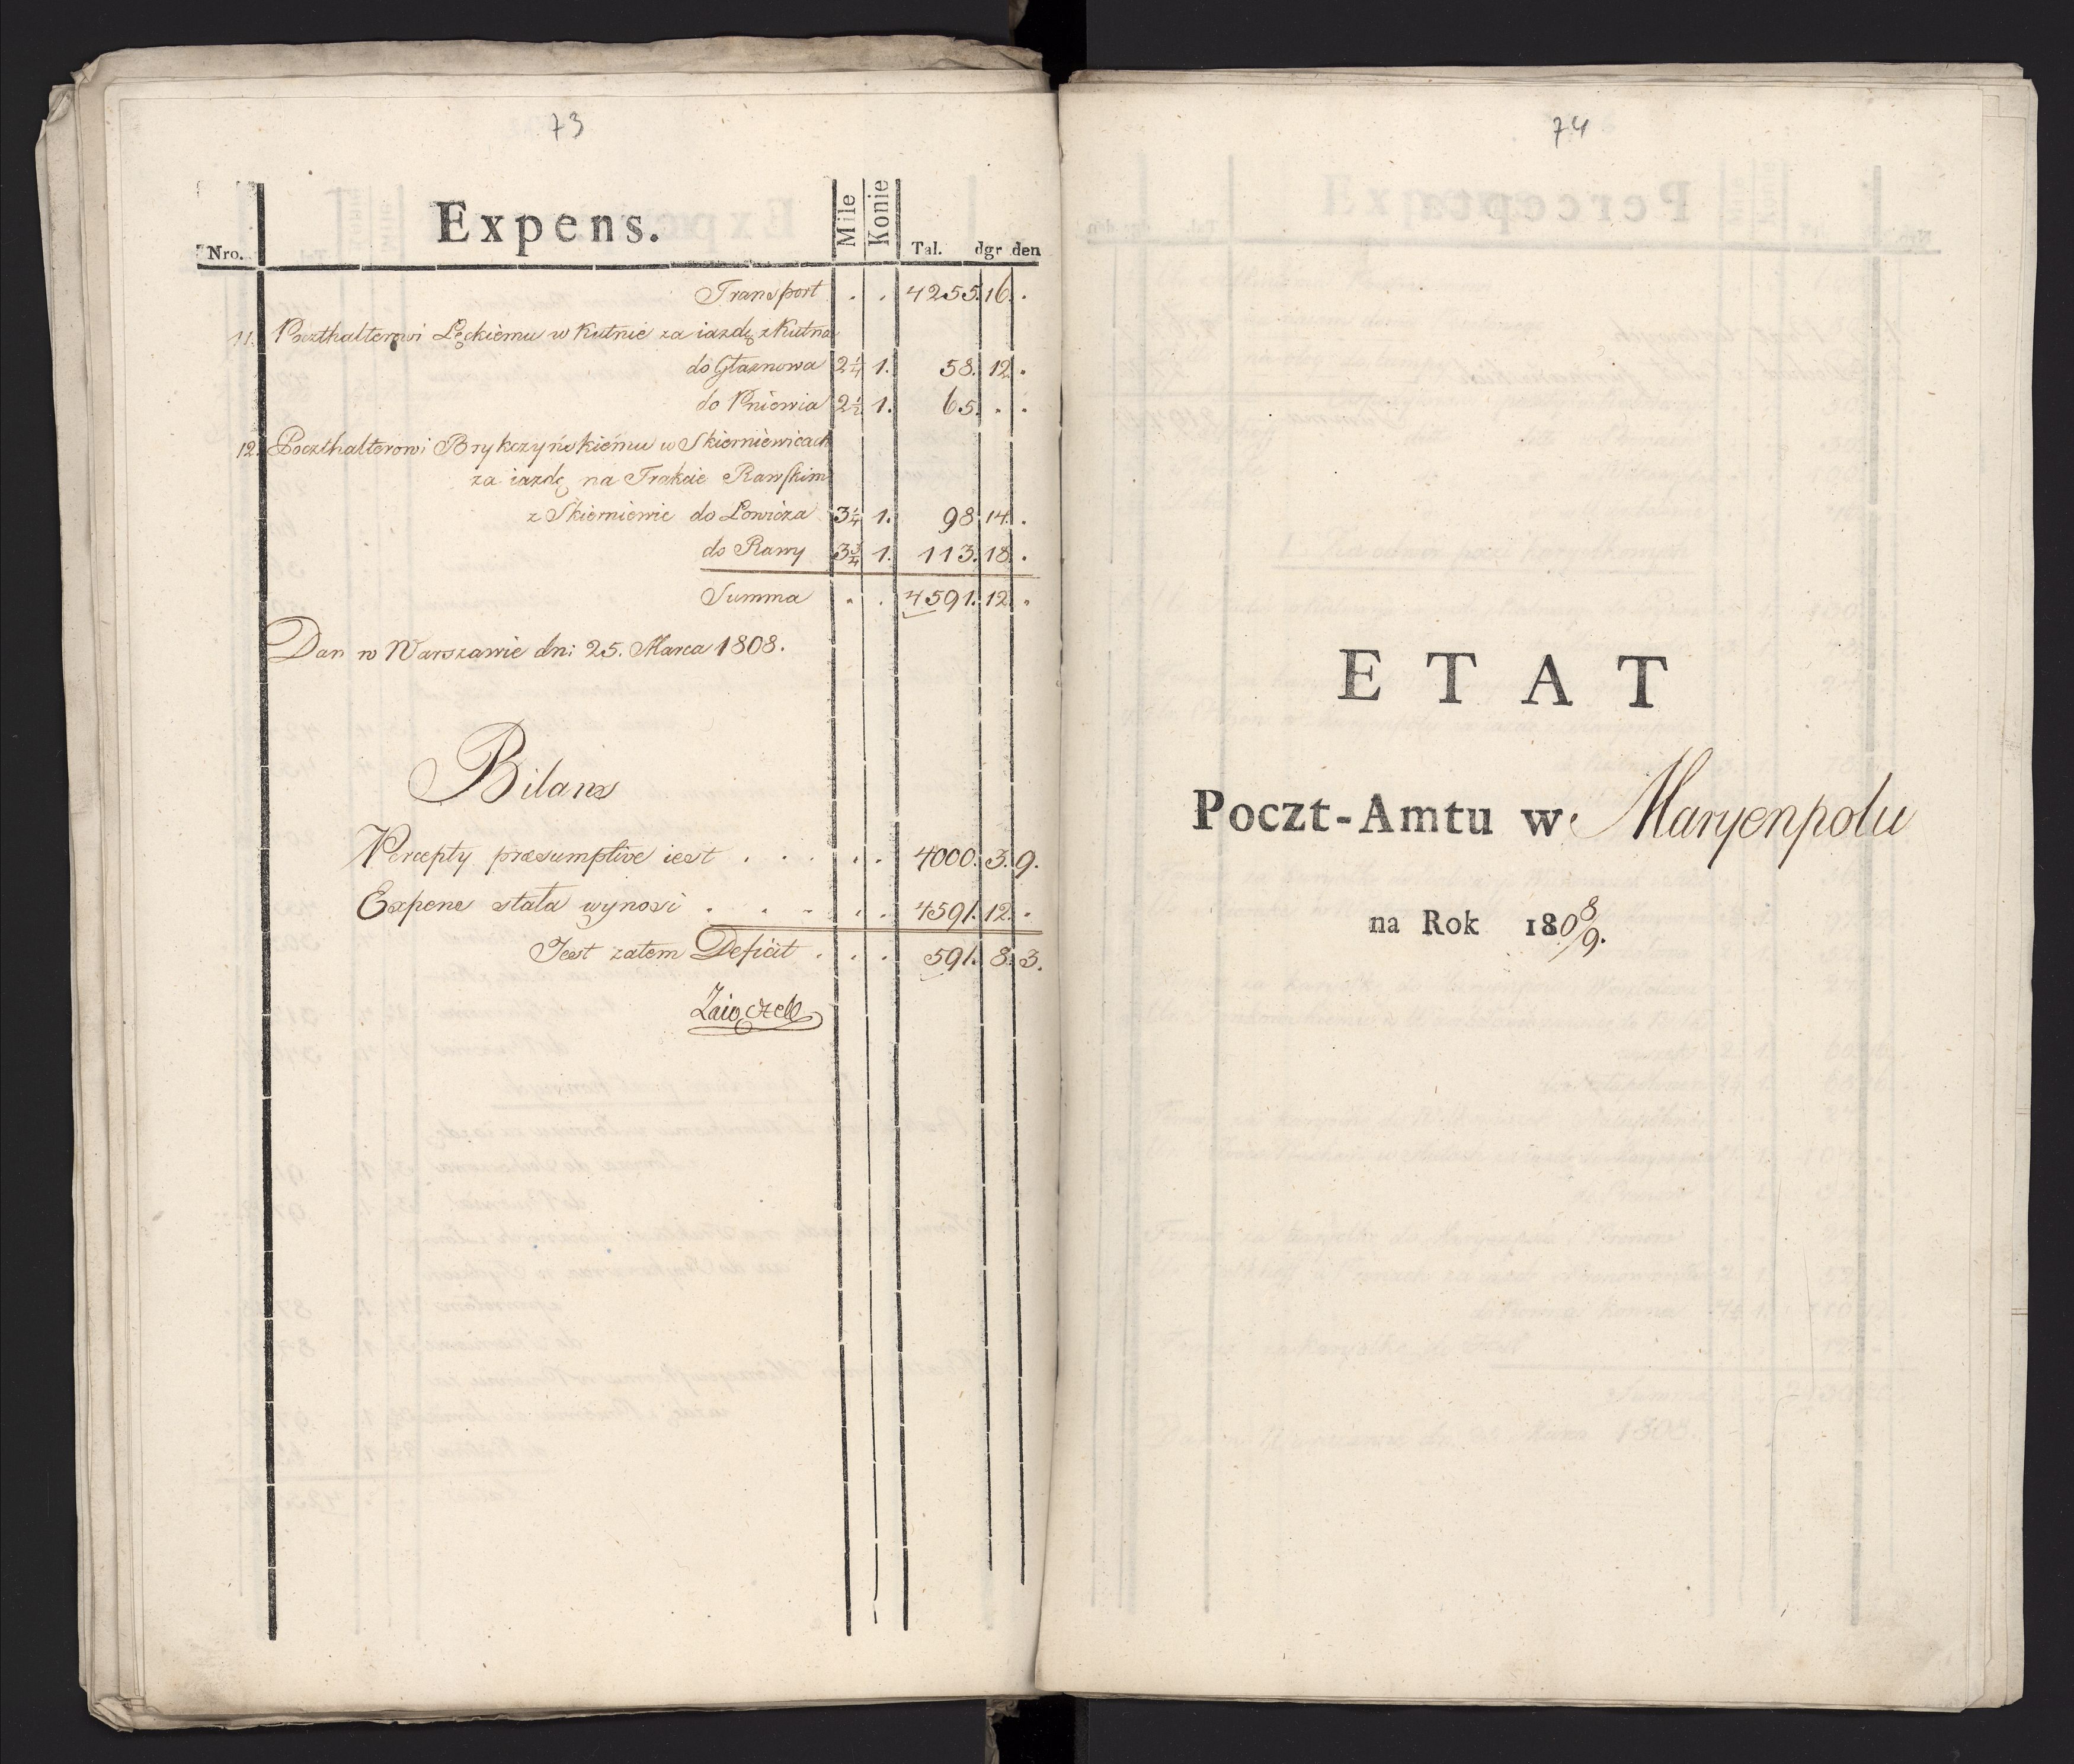 73
Nro. Expens. Mile Konie Tal. dgr den
Transport . . 4255. 16. .
11. Poczthalterowi Łęckiemu w Kutnie za iazdę z Kutna
do Głaznowa 2¼ 1. 58. 12 .
do Pniewia 2½ 1. 65. . .
12. Poczthalterowi Brykczyńskiemu w Skierniewicach
za iazdę na Trakcie Rawskim
z Skierniewic do Lowicza 3¼ 1. 98 14. .
do Rawy 3¾ 1. 113. 18. .
Summa . . 4591. 12. .
Dan w Warszawie dn: 25. Marca 1808.
Bilans
Percepty praesumptive iest . . . . . 4000. 3. 9.
Expens stała wynosi . . . . . 4591. 12. .
Jest zatem Deficit . . . 591. 8. 3.
Zaiączek
74
ETAT
Poczt-Amtu w Maryenpolu
na Rok 1808/9.